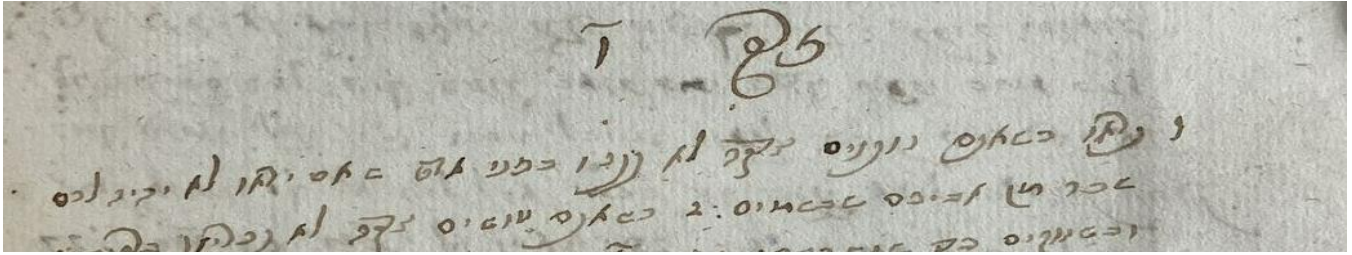 פרק ו
1 תראו כשאתם נותנים צדקה לא תתנו בפני אדם שאם יראו לא יהיה לכם
שכר מן אביכם שבשמים: 2 כשאתם עושים צדקה לא